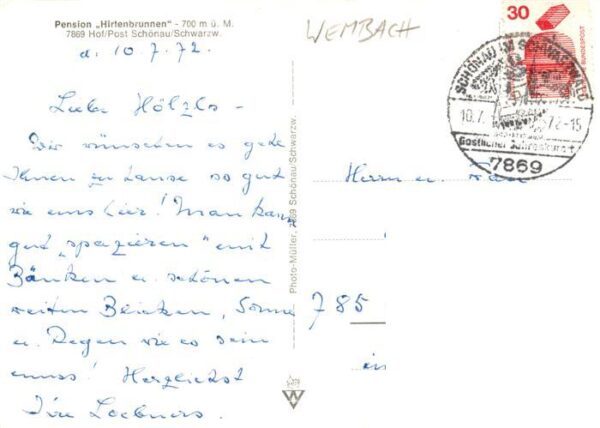 Pension „Hirtenbrunnen" - 700 m ü. M.
7869 Hof/Post Schönau/Schwarzw.
d. 10.7.72.
WEMBACH
Liebe Hölzls -
Wir wünschten es geht
Ihnen zu Hause so gut
wie uns hier! Man kann
gut „spazieren" mit
Bänken u. schönen
weiten Blicken, Sonne
u. Regen wie es sein
muss! Herzlichst
Ihre Loebners.
Photo-Müller, 7869 Schönau/Schwarzw.
30
DEUTSCHE BUNDESPOST
SCHÖNAU IM SCHWARZWALD
10.7. 72-15
7869
Herrn u. Frau
785
in
W